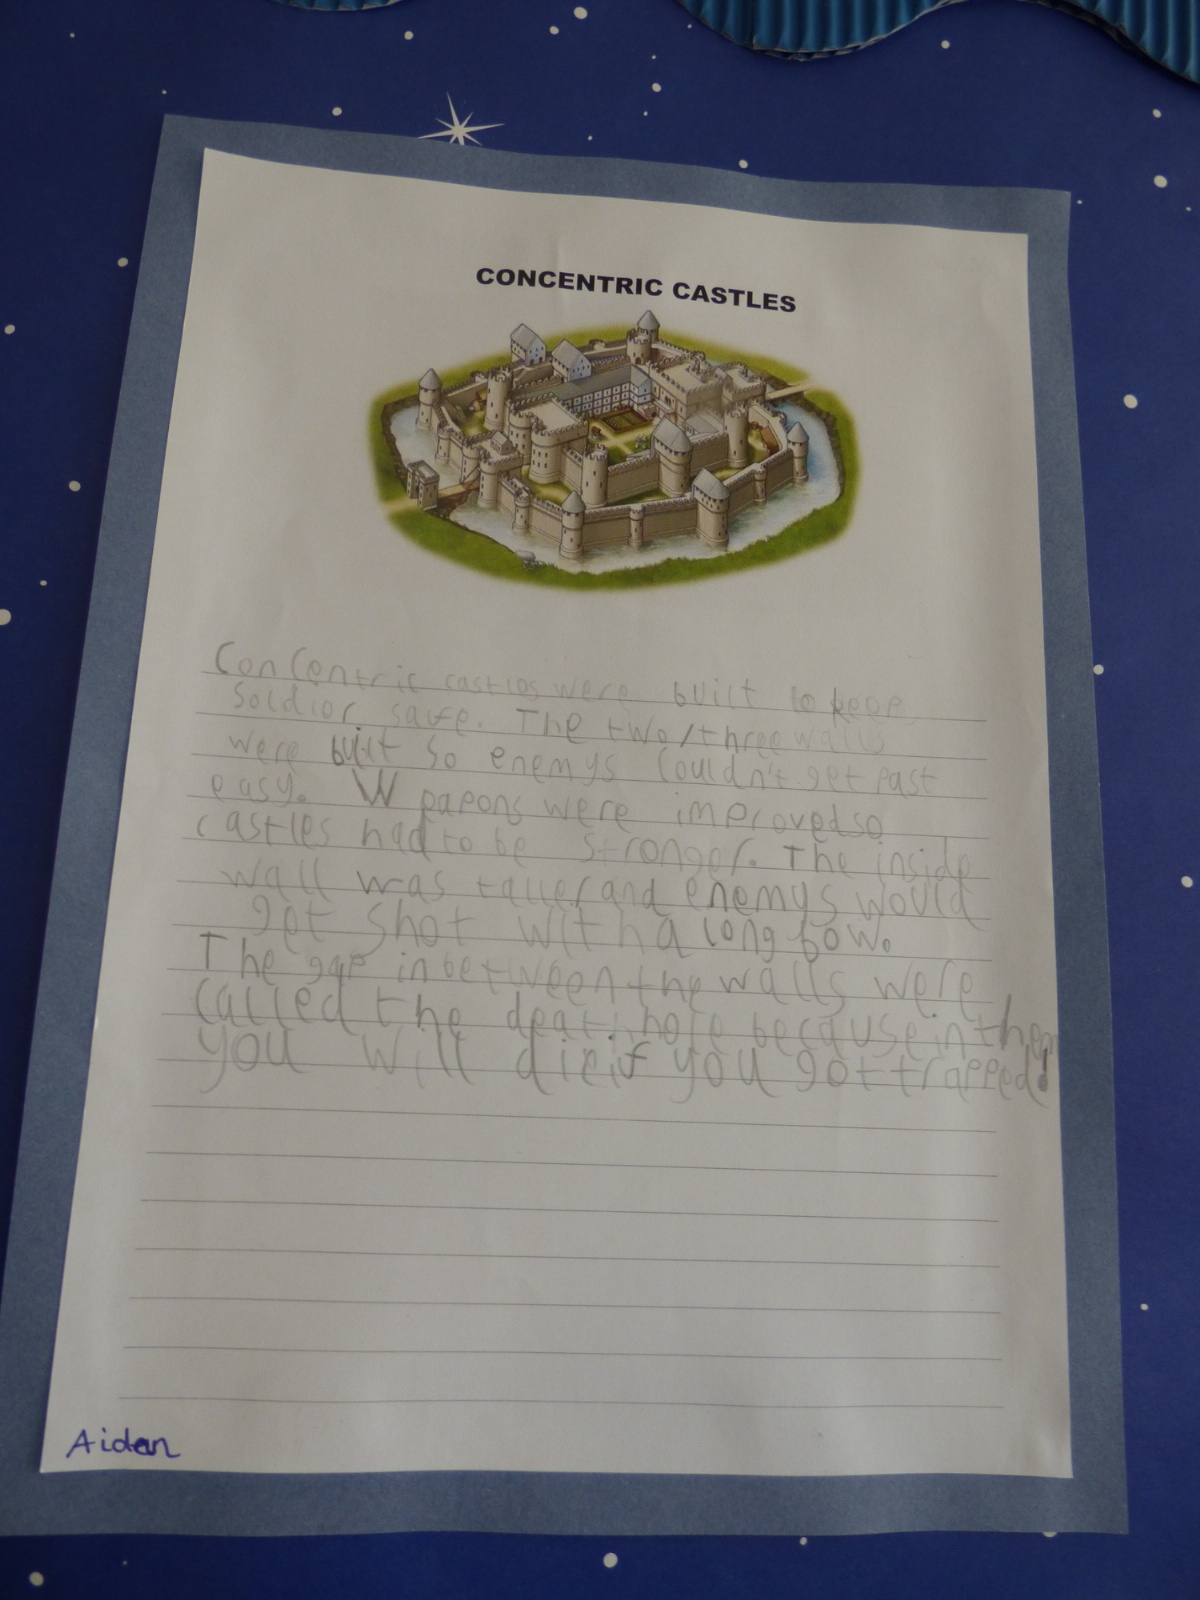 CONCENTRIC CASTLES
Concentric castles were built to keep
soldier safe. The two/three walls
were built so enemys couldn't get past
easy. Wpapons were improved so
castles had to be stronger. The inside
wall was taller and enemys would
get shot with a long bow.
The gap inbetween the walls were
called the death hole because in them
you will die if you got trapped!
Aidan